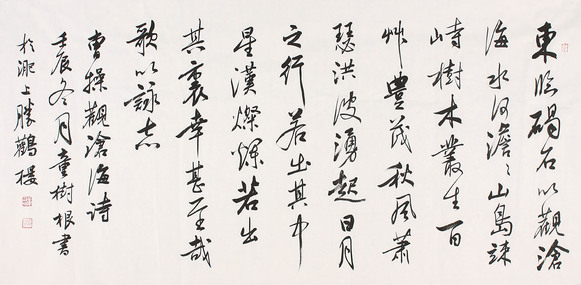 東臨碣石以觀滄
海水何澹〻山島竦
峙樹木叢生百
艸豐茂秋風蕭
瑟洪波湧起日月
之行若出其中
星漢燦爛若出
其裏幸甚至哉
歌以詠志
曹操觀滄海詩
壬辰冬月童樹根書
於淝上勝鶴樓